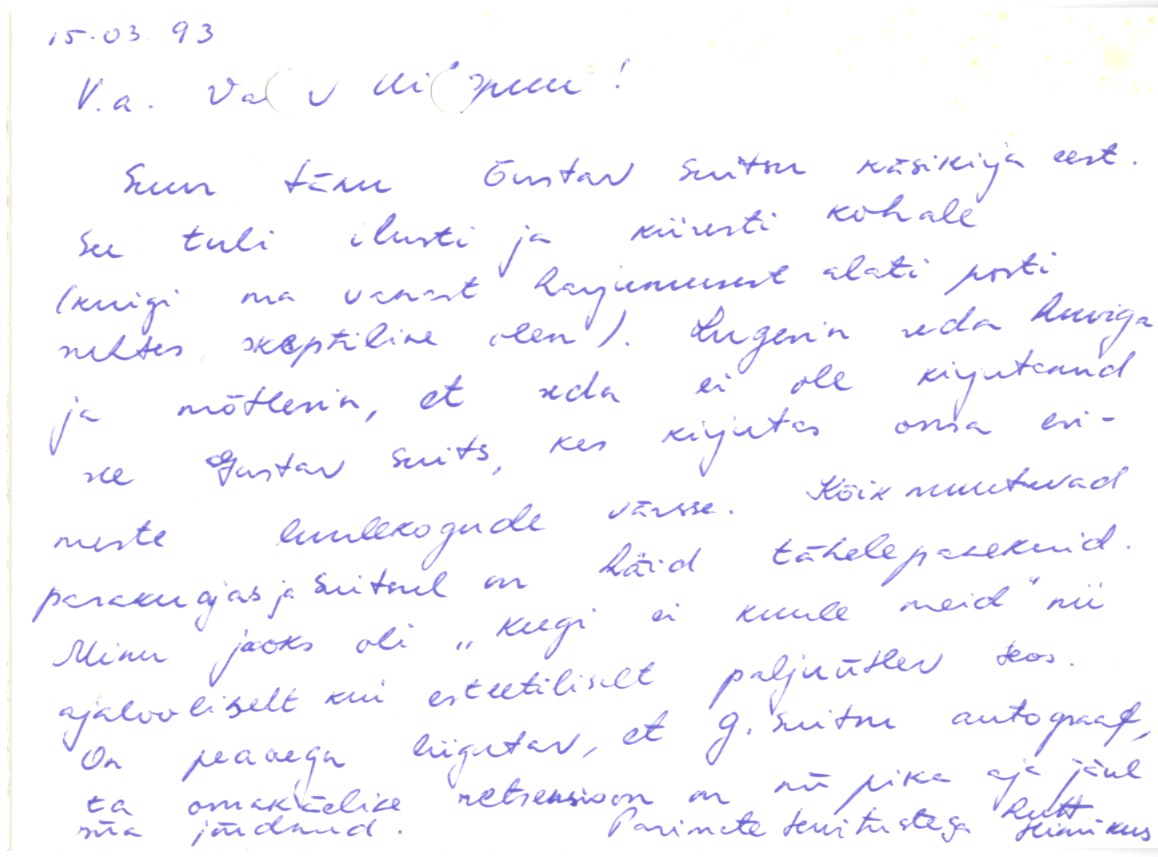 15.03.93
V.a.
Suur tänu Gustav Suitsu käsikirja eest.
See tuli ilusti ja kiiresti kohale
(kuigi ma vanast harjumusest alati posti
suhtes skeptiline olen). Lugesin seda huviga
ja mõtlesin, et seda ei ole kirjutanud
see Gustav Suits, kes kirjutas oma esi-
meste luulekogude värsse. Kõik muutuvad
paraku ajas ja Suitsul on häid tähelepanekuid.
Minu jaoks oli „Keegi ei kuule meid" nii
ajalooliselt kui esteetiliselt paljuütlev teos.
On peaaegu liigutav, et G. Suitsu autograaf,
ta omakäelise retsensioon on nii pika aja järel
siia jõudnud. Parimate tervitustega Rutt Hinrikus